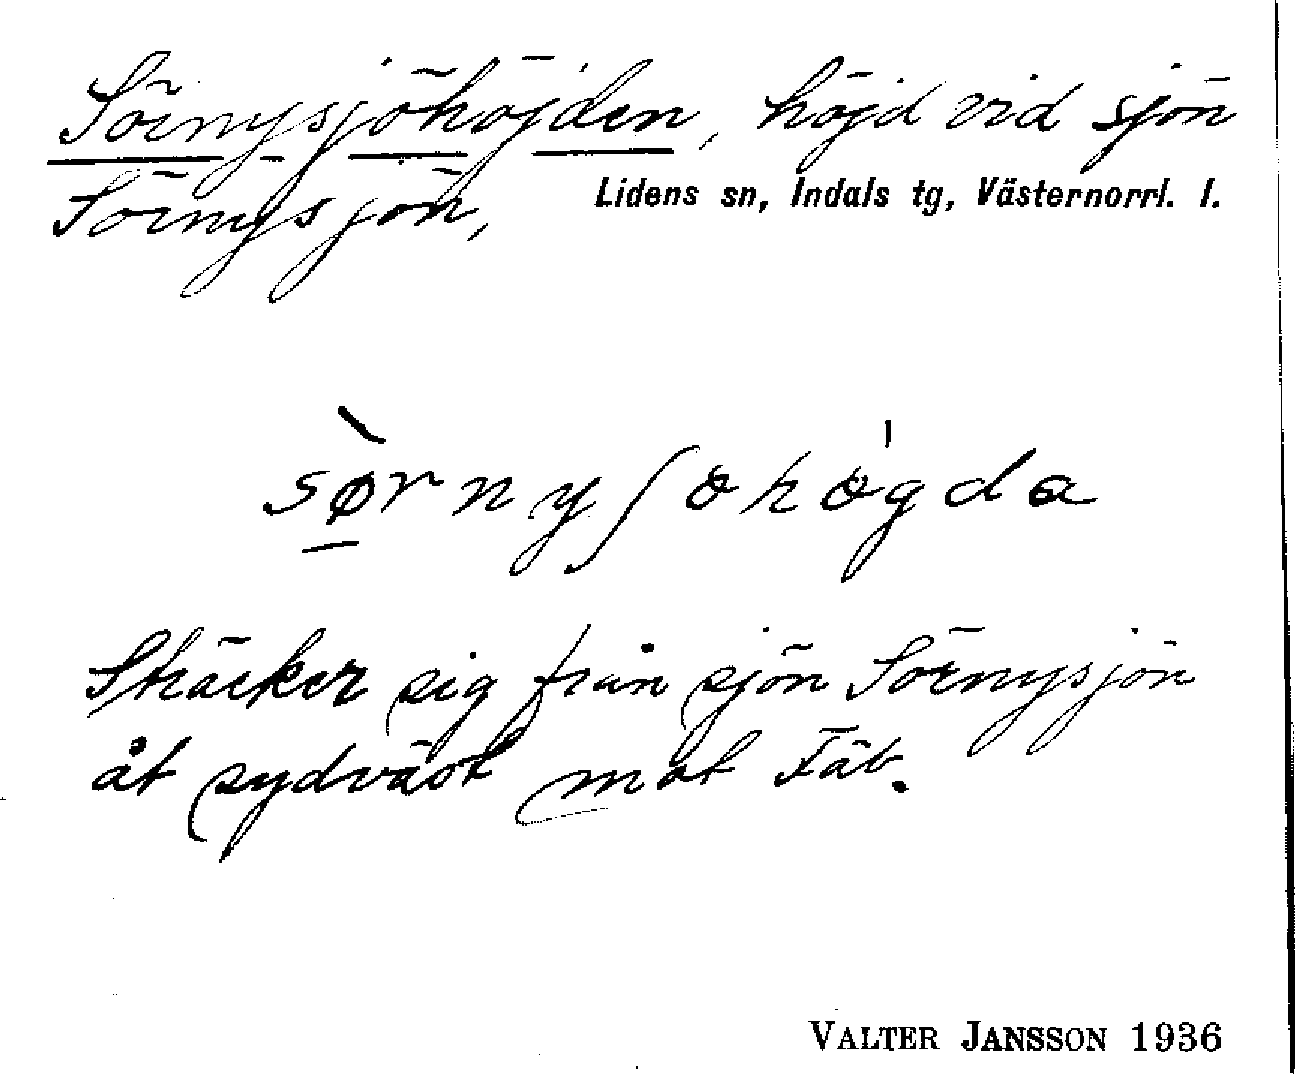 Sörnysjöhöjden, höjd vid sjön
Sörnysjön,
Lidens sn, Indals tg, Västernorrl. l.
sø̱̀rnyʃøhø̍gda
Sträcker sig från sjön Sörnysjön
åt sydväst mot Fäb.
VALTER JANSSON 1936